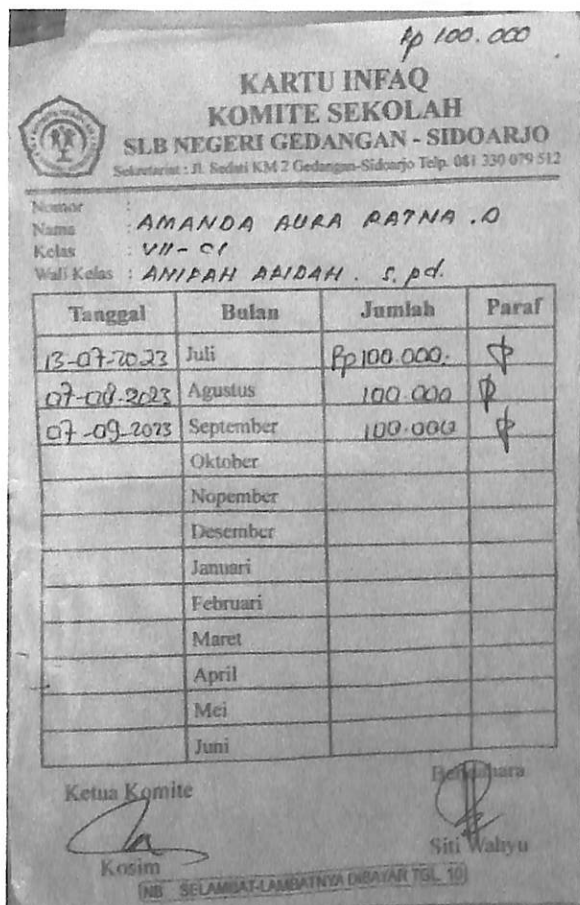 Rp 100.000
KARTU INFAQ
KOMITE SEKOLAH
SLB NEGERI GEDANGAN - SIDOARJO
Sekretariat : Jl. Sedati KM 2 Gedangan-Sidoarjo Telp. 081 330 079 512
Nomor :
Nama : AMANDA AURA RATNA . D
Kelas : VII - C1
Wali Kelas : ANIPAH ABIDAH . S. pd.
Tanggal Bulan Jumlah Paraf
13-07-2023 Juli Rp 100.000.
07-08-2023 Agustus 100.000
07-09-2023 September 100.000
Oktober
Nopember
Desember
Januari
Februari
Maret
April
Mei
Juni
Ketua Komite Bendahara
Kosim Siti Wahyu
NB SELAMBAT-LAMBATNYA DIBAYAR TGL. 10